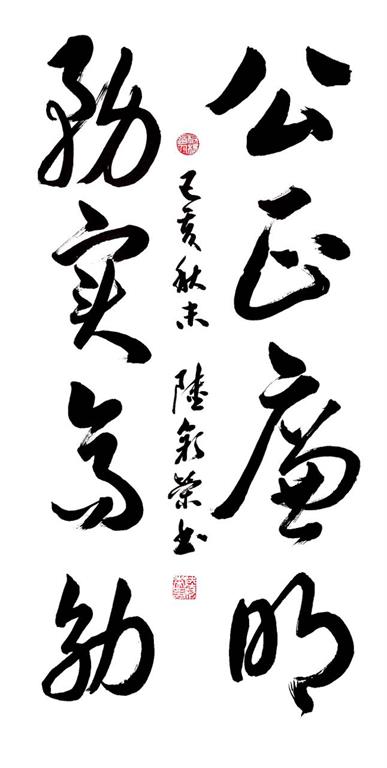 公正廉明
務实高効
己亥秋末 陸彩荣书